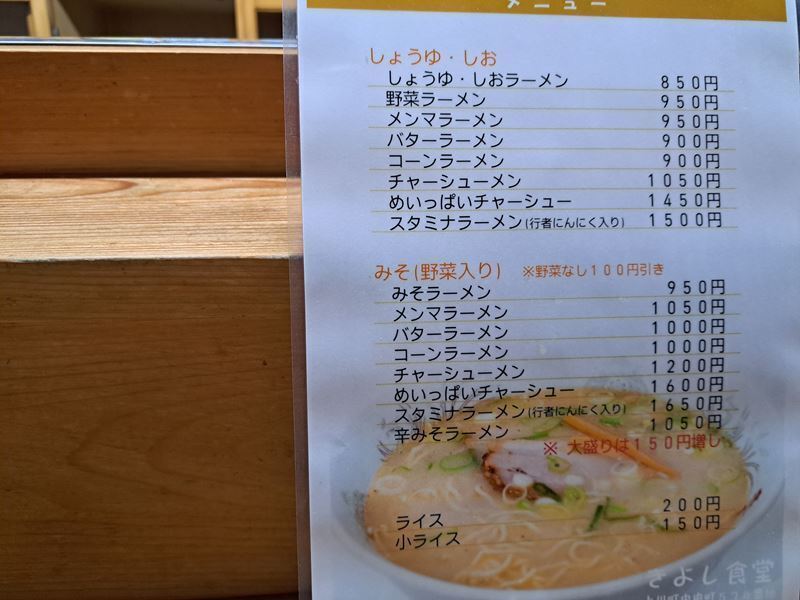 メニュー
しょうゆ・しお
しょうゆ・しおラーメン 850円
野菜ラーメン 950円
メンマラーメン 950円
バターラーメン 900円
コーンラーメン 900円
チャーシューメン 1050円
めいっぱいチャーシュー 1450円
スタミナラーメン(行者にんにく入り) 1500円
みそ(野菜入り) ※野菜なし100円引き
みそラーメン 950円
メンマラーメン 1050円
バターラーメン 1000円
コーンラーメン 1000円
チャーシューメン 1200円
めいっぱいチャーシュー 1600円
スタミナラーメン(行者にんにく入り) 1650円
辛みそラーメン 1050円
※ 大盛りは150円増し
ライス 200円
小ライス 150円
きよし食堂